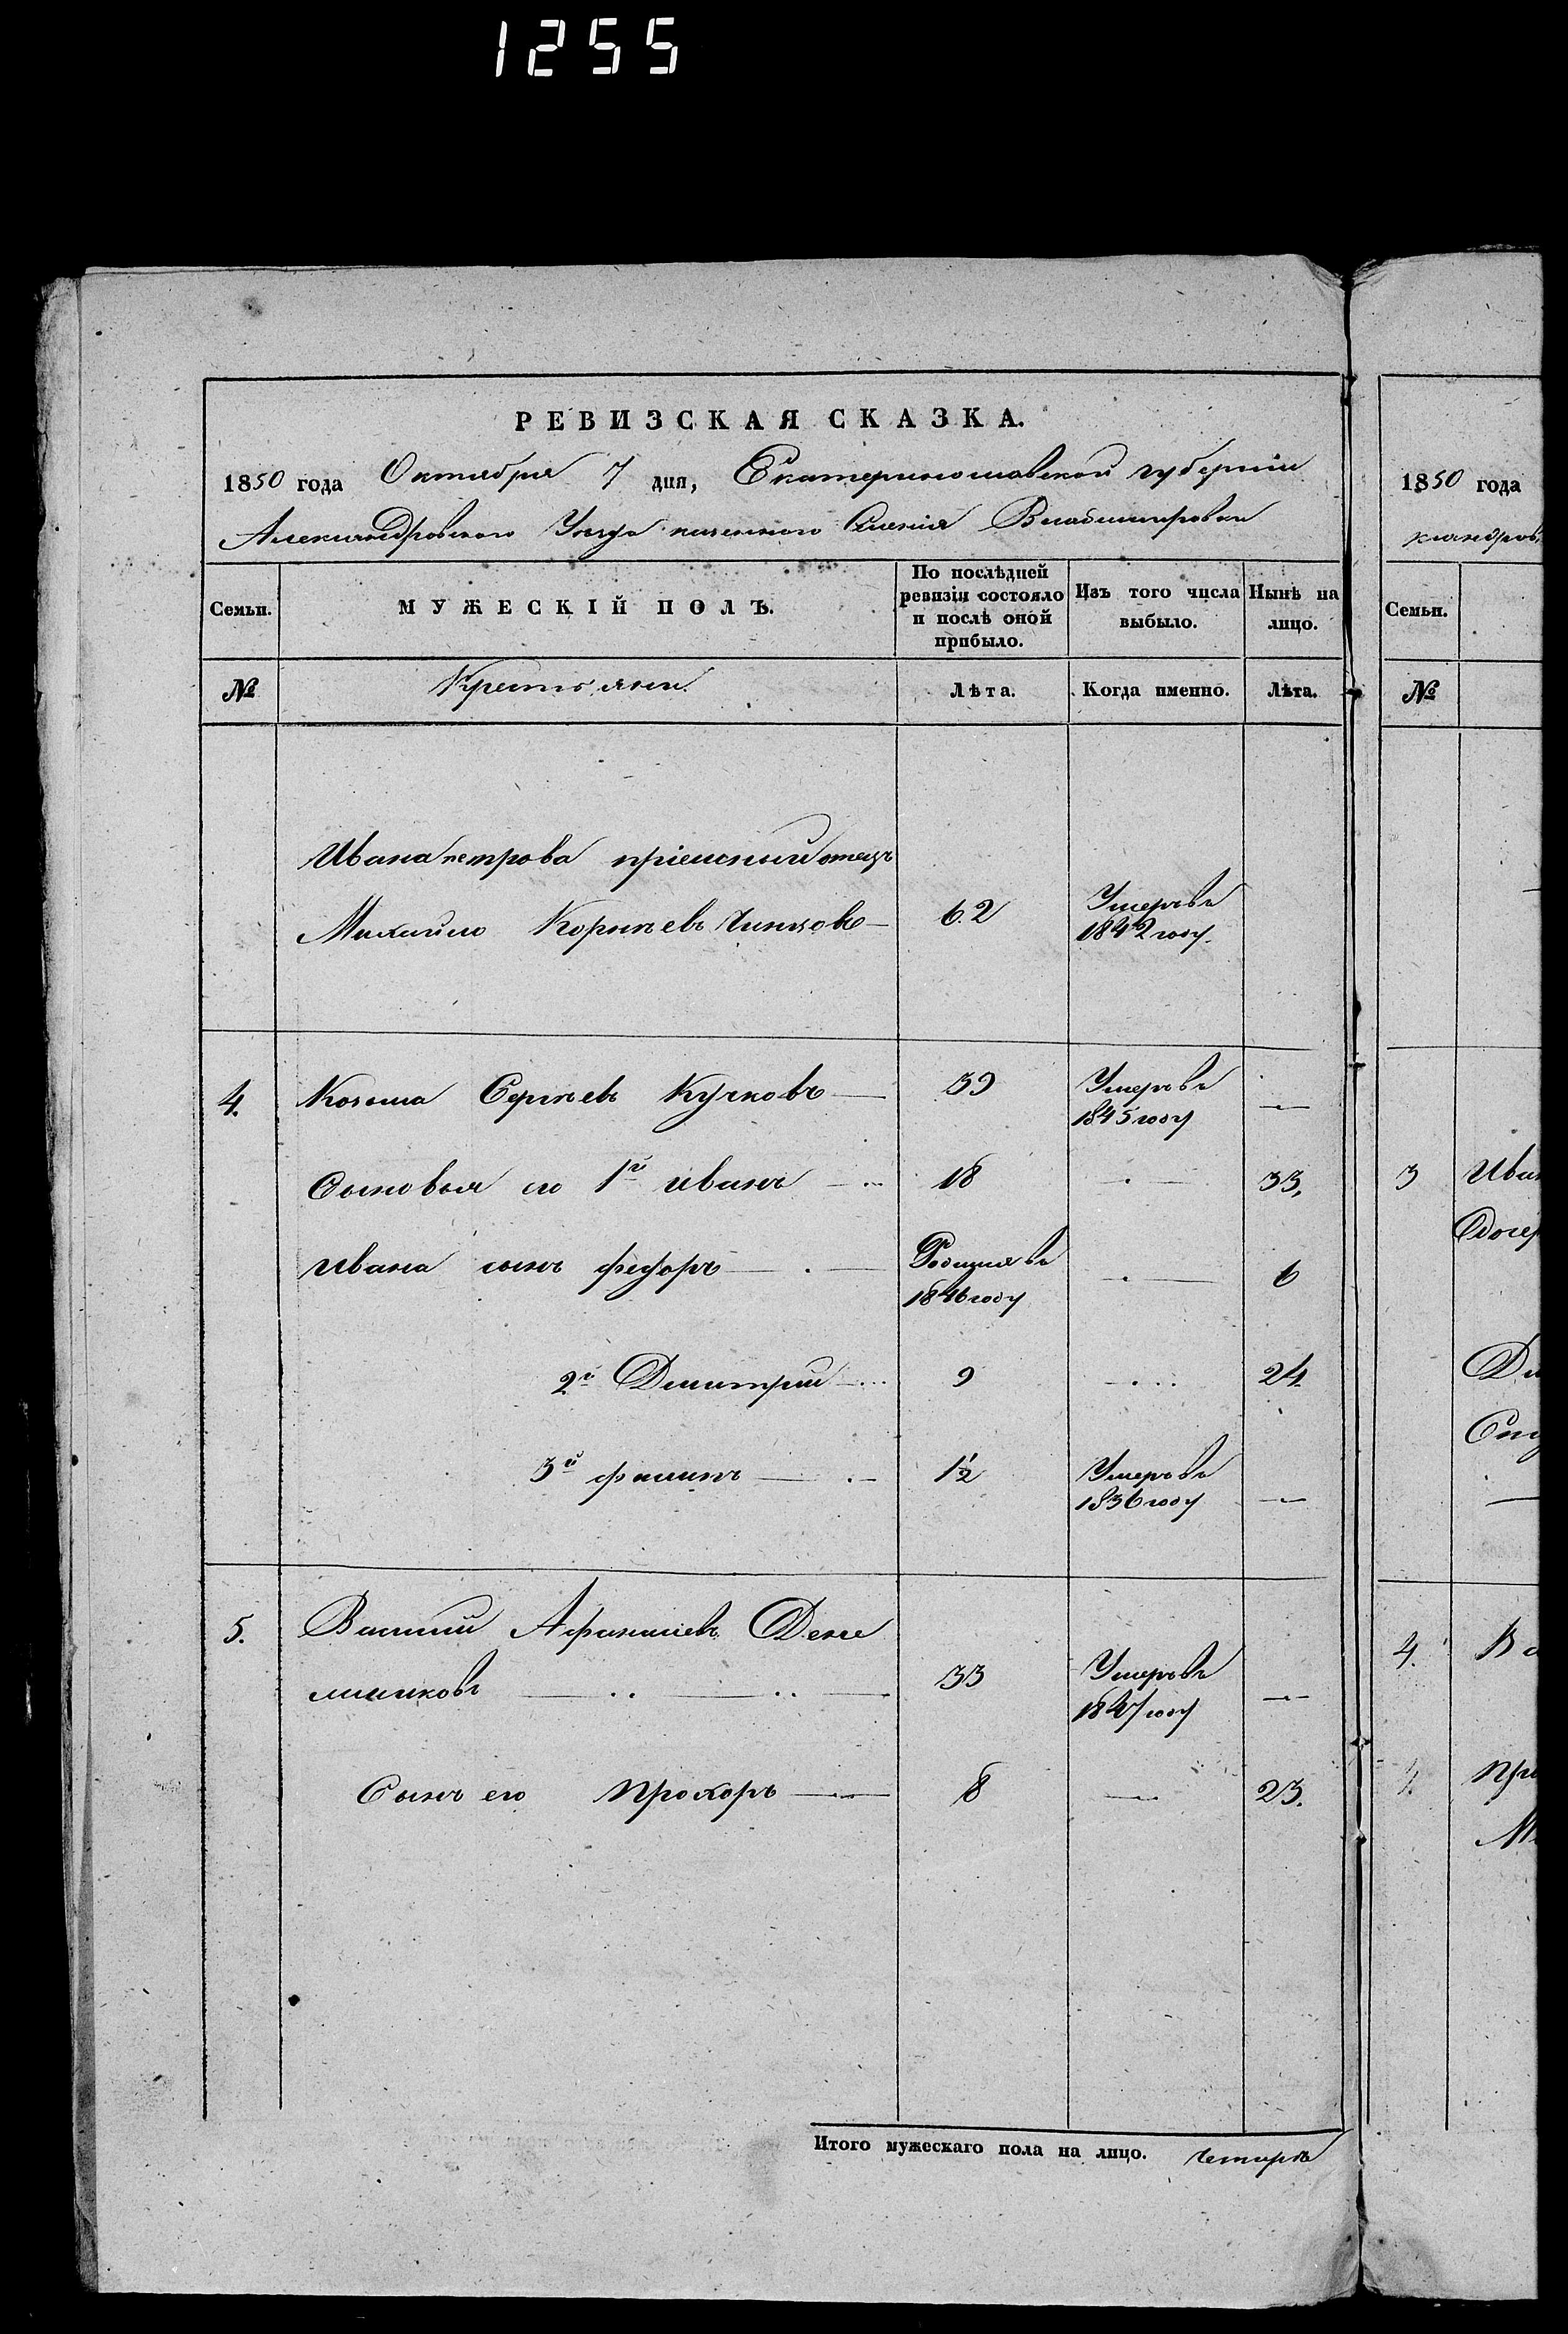 1255
РЕВИЗСКАЯ СКАЗКА.
1850 года Октября 7 дня, Екатеринославской губернии
Александровского Уезда казенного Селенія Владимировки
Семьи. МУЖЕСКІЙ ПОЛЪ. По послѣдней ревизіи состояло и послѣ оной прибыло. Изъ того числа выбыло. Нынѣ на лицо.
№ Крестьяни. Лѣта. Когда именно. Лѣта.
Ивана петрова пріемный отецъ
Михайло Корнѣевъ 62 Умеръ въ 1842 году.
4. Козьма Сергѣевъ Кучковъ 39 Умеръ въ 1845 году
Сыновья его 1й иванъ 18 33,
Ивана сынъ федоръ Родился въ 1846 году 6
2й Дмитрий 9 24
3й филипъ 1½ Умеръ въ 1836 году
5. Василий Афанасиевъ
33 Умеръ въ 1847 году
Сынъ его Прохоръ 8 23.
Итого мужескаго пола на лицо. четыре
1850 года
Семьи.
№
3
4.